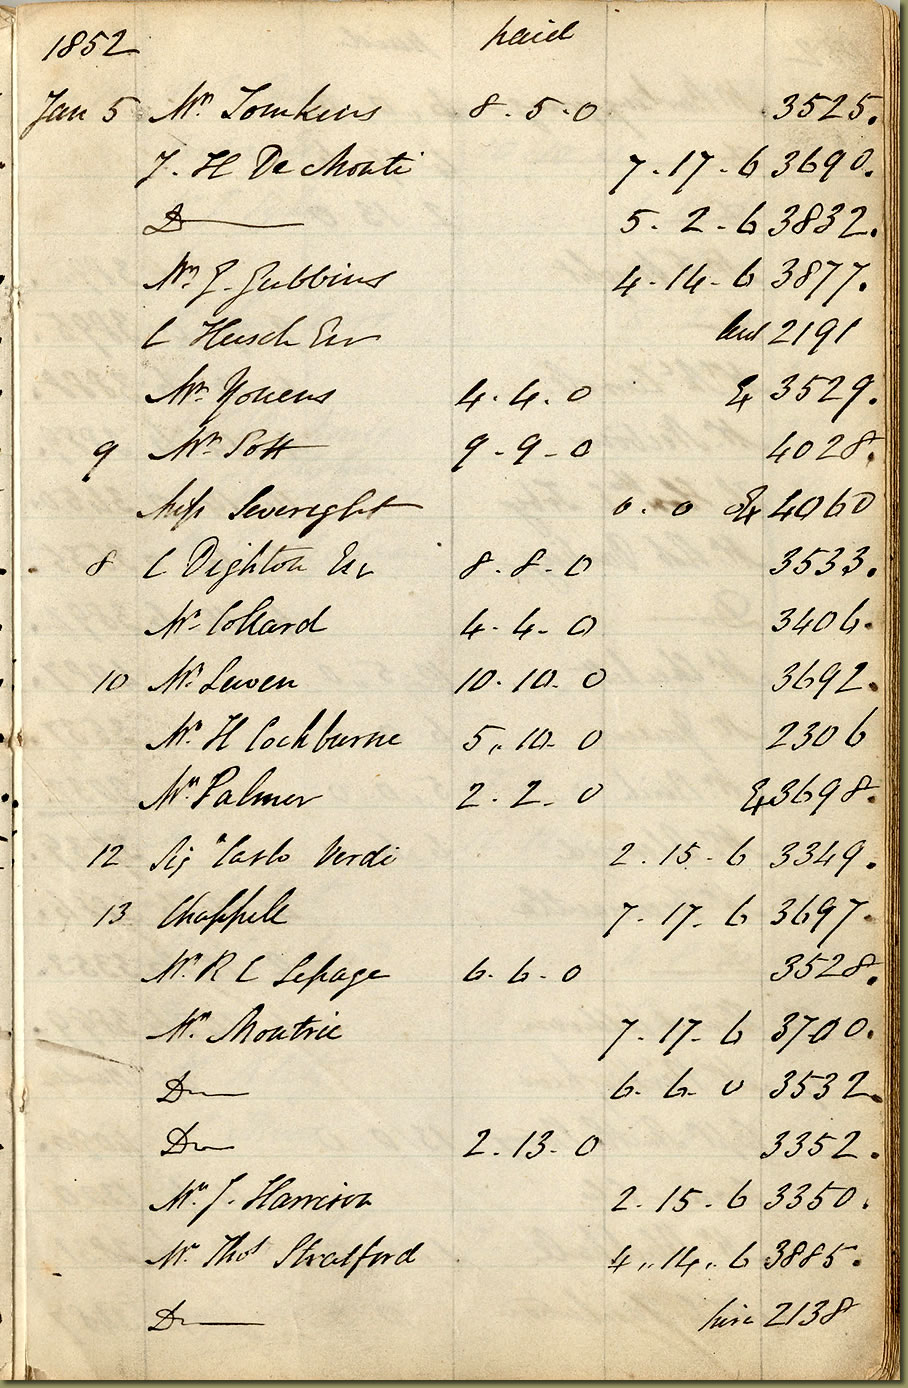 1852 paid
Jan 5 Mr. Tomkins 8 . 5 . 0 3525.
J. H De Monti 7 . 17 . 6 3690.
Do 5 . 2 . 6 3832.
Mr. J. Gubbins 4 . 14 . 6 3877.
C Heusch Esr 2191
Mr. Youens 4 . 4 . 0 & 3529.
9 Mr. Pott 9 - 9 - 0 4028.
Miss Severight 0 . 0 4060
8 C Dighton Esr 8 . 8 - 0 3533.
Mr. Collard 4 . 4 - 0 3406.
10 Mr. Lewen 10 . 10 . 0 3692.
Mr. H Cockburne 5 ,, 10 - 0 2306
Mr. Palmer 2 . 2 - 0 & 3698.
12 Sigr Carlo Verdi 2 . 15 - 6 3349.
13 Chappell 7 . 17 - 6 3697.
Mr. R C Lepage 6 . 6 - 0 3528.
Mr. Moutrie 7 . 17 - 6 3700.
Do 6 . 6 . 0 3532.
Do 2 . 13 - 0 3352.
Mr. J. Harrison 2 . 15 . 6 3350.
Mr. Thos Stratford 4 ,, 14 ,, 6 3885.
Do hire 2138